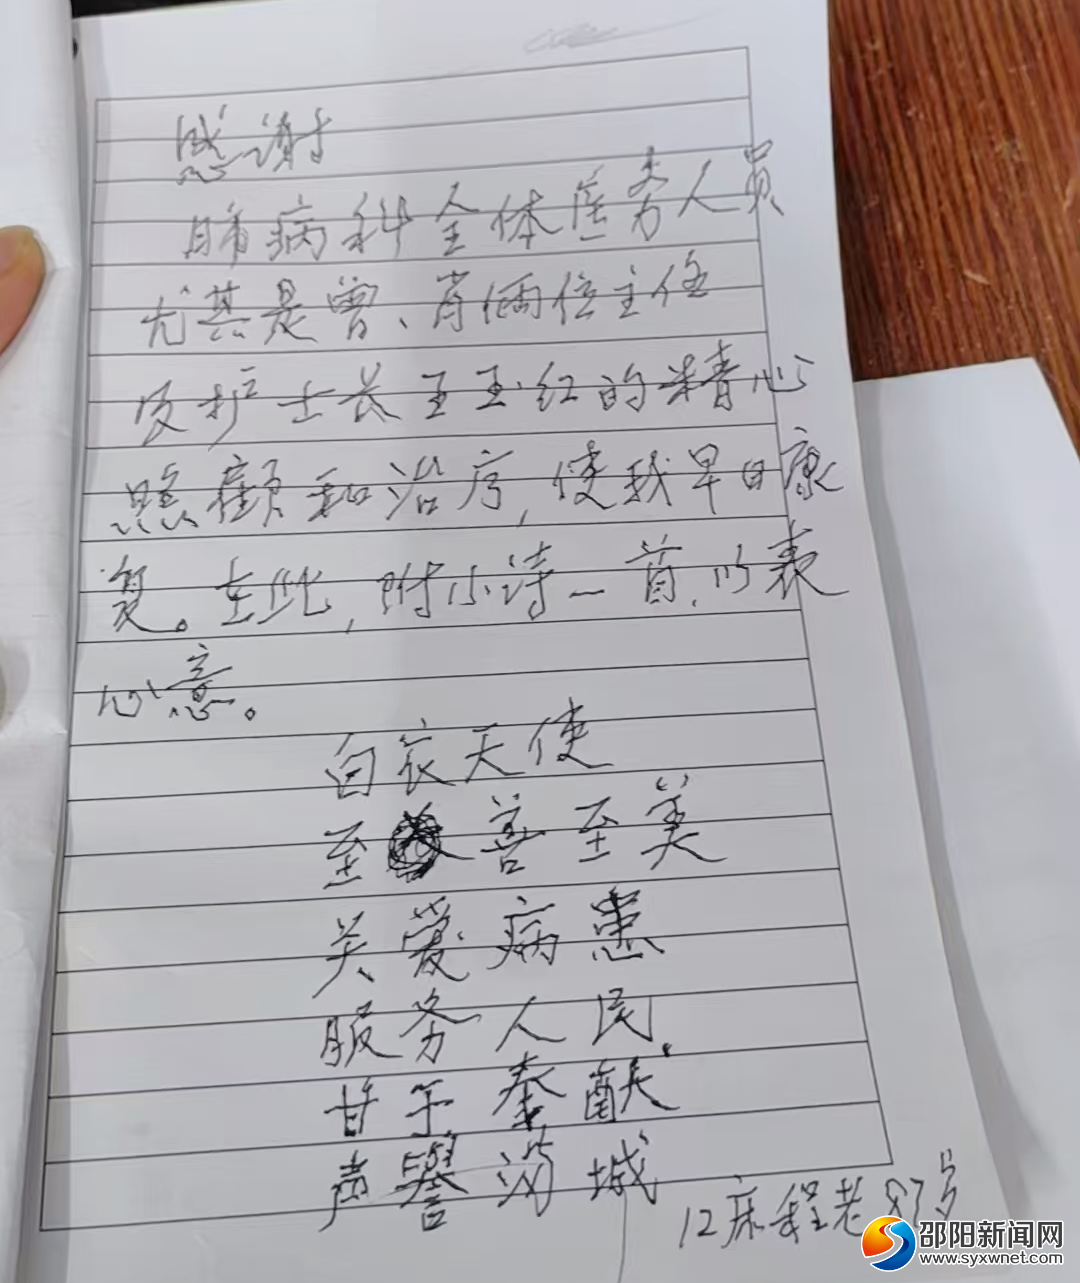 感谢
肺病科全体医务人员
尤其是曾、肖俩位主任
及护士长王玉红的精心
照顾和治疗，使我早日康
复。在此，附小诗一首，以表
心意。
白衣天使
至善至美
关爱病患
服务人民
甘于奉献
声誉满城
12床程老87岁
邵阳新闻网
www.syxwnet.com